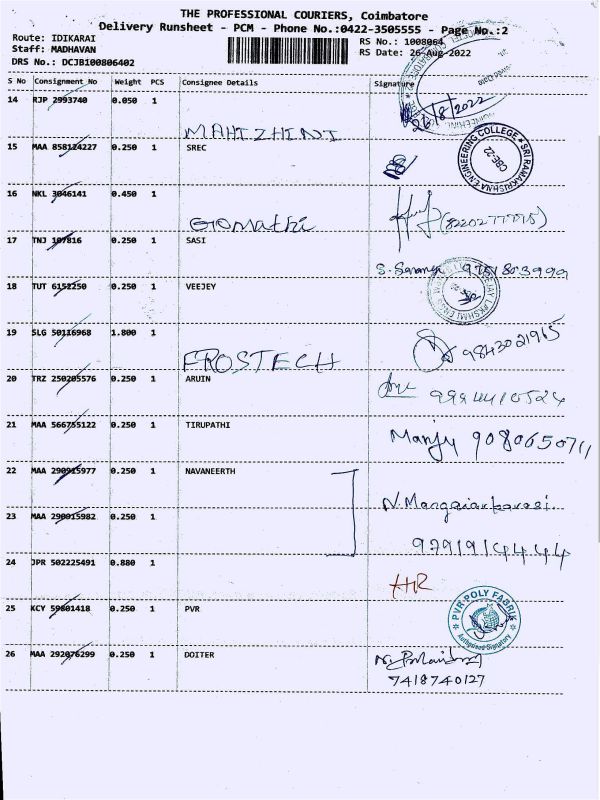 THE PROFESSIONAL COURIERS, Coimbatore
Delivery Runsheet - PCM - Phone No.:0422-3505555 - Page No.:2
Route: IDIKARAI
RS No.: 1008064
Staff: MADHAVAN
RS Date: 26-Aug-2022
DRS No.: DCJB100806402
S No Consignment_No Weight PCS Consignee Details Signature
14 RJP 2993740 0.050 1
26/8/2022
MAHIZHINI
15 MAA 858124227 0.250 1 SREC
SRI RAMAKRISHNA ENGINEERING COLLEGE
CBE-22
16 NKL 3046141 0.450 1
Gomathi
(8220277775)
17 TNJ 107816 0.250 1 SASI
S. Saranya 9751803999
18 TUT 6152250 0.250 1 VEEJEY
19 SLG 50116968 1.800 1
FROSTECH
9843021965
20 TRZ 250205576 0.250 1 ARUIN
9994410524
21 MAA 566755122 0.250 1 TIRUPATHI
Manju 9080650711
22 MAA 290915977 0.250 1 NAVANEERTH
N. Mangaiarkarasi
23 MAA 290915982 0.250 1
9791914444
24 JPR 502225491 0.880 1
HR
25 KCY 59801418 0.250 1 PVR
PVR POLY FABRIK
Authorised Signatory
26 MAA 292076299 0.250 1 DOITER
7418740127